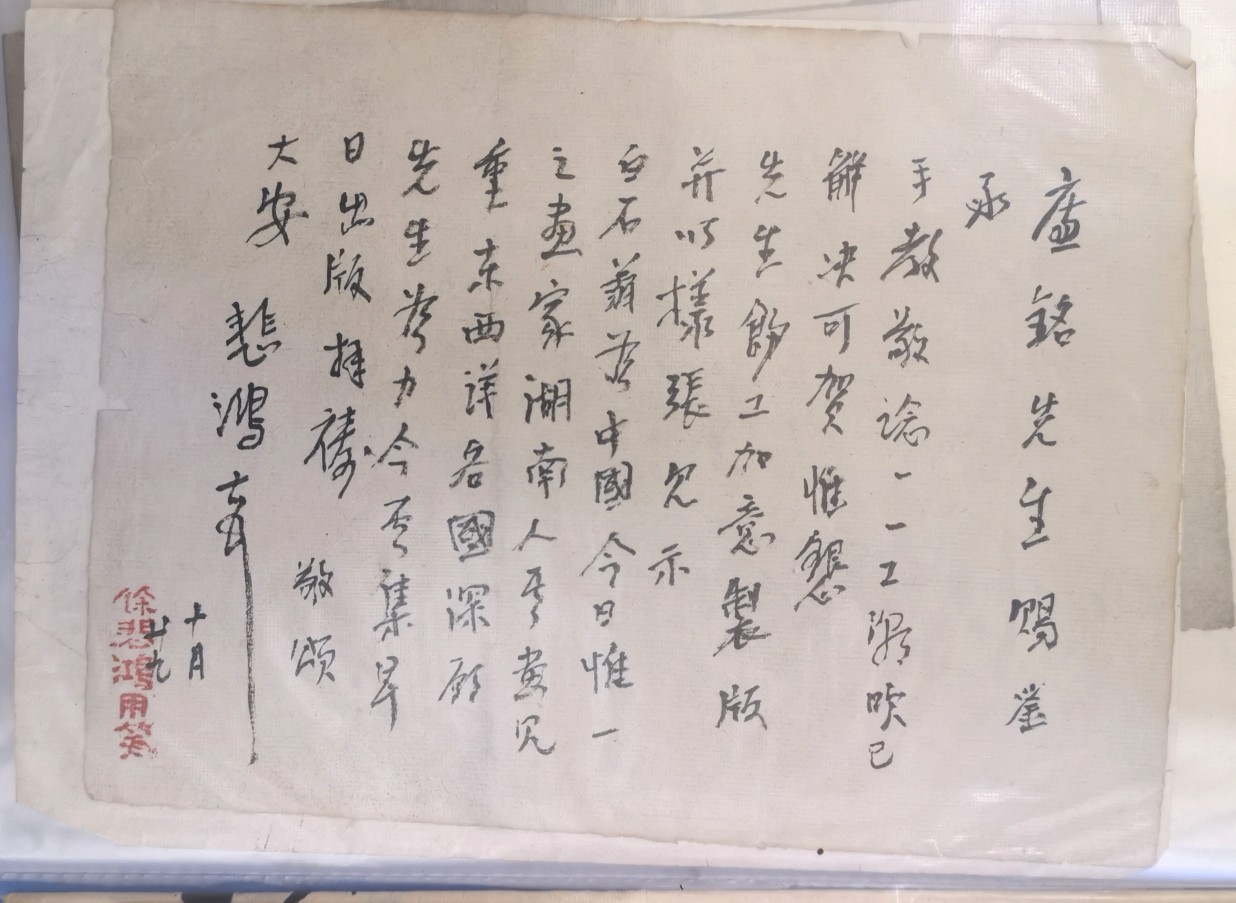 廉銘先生賜鑒
承
手教敬諗一一工潮
已
解决可賀惟懇
先生飭工加意製版
并以樣張見示
白石翁為中國今日惟一
之畫家湖南人其畫見
重東西洋各國深願
先生為力令其集早
日出版拜禱
敬頌
大安
悲鴻
十月
廿九
徐悲鴻用箋